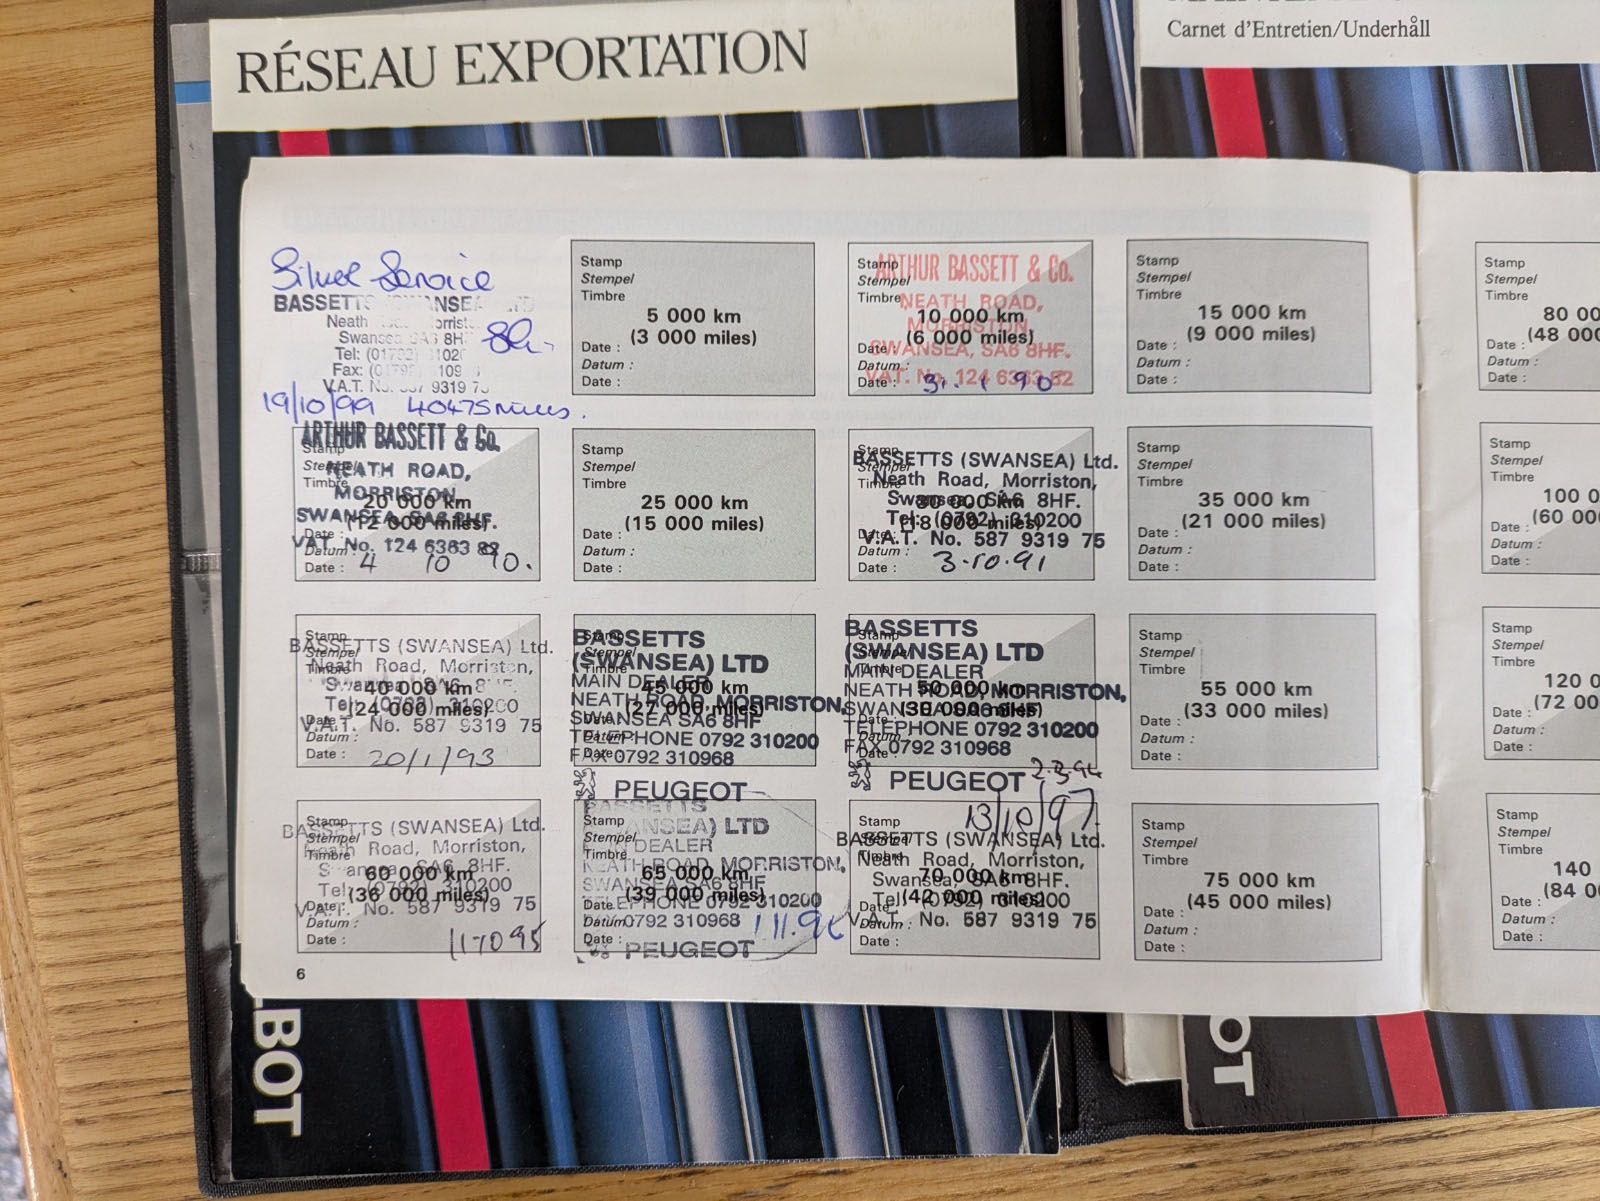 RÉSEAU EXPORTATION
Carnet d'Entretien/Underhåll
Silver Service
BASSETTS
Neath
Swansea SA6 8H
Tel:
Fax:
V.A.T. No. 9319 75
19/10/99 40475 miles.
Stamp
Stempel
Timbre
5 000 km
(3 000 miles)
Date :
Datum :
Date :
ARTHUR BASSETT & Co.
NEATH ROAD,
MORRISTON,
SWANSEA, SA6 8HF.
VAT. No. 124 6363 82
Stamp
Stempel
Timbre
10 000 km
(6 000 miles)
Date :
Date :
31. 1 90
Stamp
Stempel
Timbre
15 000 km
(9 000 miles)
Date :
Datum :
Date :
Stamp
Stempel
Timbre
80 00
(48 000
Date :
Datum :
Date :
ARTHUR BASSETT & Co.
NEATH ROAD,
MORRISTON,
SWANSEA, SA6 8HF.
VAT. No. 124 6363 82
Stamp
Stempel
Timbre
20 000 km
(12 000 miles)
Date :
Datum :
Date : 4 10 90.
Stamp
Stempel
Timbre
25 000 km
(15 000 miles)
Date :
Datum :
Date :
BASSETTS (SWANSEA) Ltd.
Neath Road, Morriston,
Swansea, SA6 8HF.
Tel: (0792) 310200
V.A.T. No. 587 9319 75
Stamp
Stempel
Timbre
30 000 km
(18 000 miles)
Date :
Datum :
Date : 3.10.91
Stamp
Stempel
Timbre
35 000 km
(21 000 miles)
Date :
Datum :
Date :
Stamp
Stempel
Timbre
100 0
(60 00
Date :
Datum :
Date :
BASSETTS (SWANSEA) Ltd.
Neath Road, Morriston,
Swansea, SA6 8HF.
Tel: (0792) 310200
V.A.T. No. 587 9319 75
Stamp
Stempel
Timbre
40 000 km
(24 000 miles)
Date :
Datum :
Date : 20/1/93
BASSETTS
(SWANSEA) LTD
MAIN DEALER
NEATH ROAD, MORRISTON,
SWANSEA SA6 8HF
TELEPHONE 0792 310200
FAX 0792 310968
PEUGEOT
Stamp
Stempel
Timbre
45 000 km
(27 000 miles)
Date :
Datum :
Date :
BASSETTS
(SWANSEA) LTD
MAIN DEALER
NEATH ROAD, MORRISTON,
SWANSEA SA6 8HF
TELEPHONE 0792 310200
FAX 0792 310968
PEUGEOT
2.3.94
Stamp
Stempel
Timbre
50 000 km
(30 000 miles)
Date :
Datum :
Date :
Stamp
Stempel
Timbre
55 000 km
(33 000 miles)
Date :
Datum :
Date :
Stamp
Stempel
Timbre
120 0
(72 00
Date :
Datum :
Date :
BASSETTS (SWANSEA) Ltd.
Neath Road, Morriston,
Swansea, SA6 8HF.
Tel: (0792) 310200
V.A.T. No. 587 9319 75
Stamp
Stempel
Timbre
60 000 km
(36 000 miles)
Date :
Datum :
Date :
BASSETTS
(SWANSEA) LTD
MAIN DEALER
NEATH ROAD, MORRISTON,
SWANSEA SA6 8HF
TELEPHONE 0792 310200
FAX 0792 310968
PEUGEOT
Stamp
Stempel
Timbre
65 000 km
(39 000 miles)
Date :
Datum :
Date :
13/10/97.
BASSETTS (SWANSEA) Ltd.
Neath Road, Morriston,
Swansea, SA6 8HF.
Tel: (0792) 310200
V.A.T. No. 587 9319 75
Stamp
Stempel
Timbre
70 000 km
(42 000 miles)
Date :
Datum :
Date :
Stamp
Stempel
Timbre
75 000 km
(45 000 miles)
Date :
Datum :
Date :
Stamp
Stempel
Timbre
140
(84 0
Date :
Datum :
Date :
6
BOT
OT